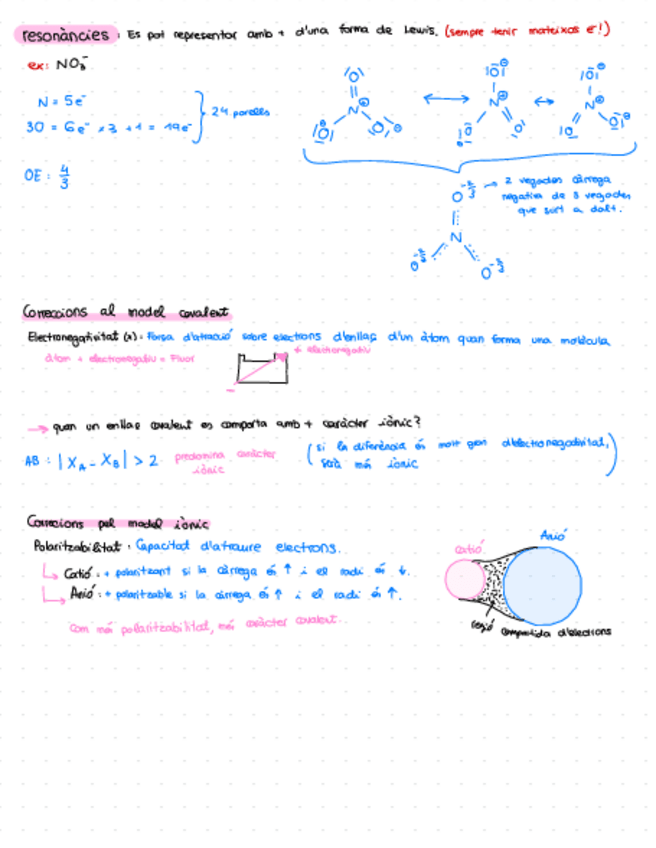 resonàncies : Es pot representar amb + d'una forma de Lewis. (sempre tenir mateixos e⁻!)
ex: NO₃⁻
N = 5e⁻
3O = 6e⁻ x 3 + 1 = 19e⁻
24 parelles
OE : 4/3
2 vegades càrrega
negativa de 3 vegades
que surt a dalt.
Correccions al model covalent
Electronegativitat (x) : Força d'atracció sobre electrons d'enllaç d'un àtom quan forma una molècula
àtom + electronegatiu = Fluor
+ electronegatiu
→ quan un enllaç covalent es comporta amb + caràcter iònic?
AB : |X_A - X_B| > 2 predomina caràcter iònic
(si la diferència és molt gran d'electronegativitat,
serà més iònic)
Correccions pel model iònic
Polaritzabilitat : Capacitat d'atraure electrons.
Catió : + polaritzant si la càrrega és ↑ i el radi és ↓.
Anió : + polaritzable si la càrrega és ↑ i el radi és ↑.
com més pol·laritzabilitat, més caràcter covalent.
Catió
Anió
regió compartida d'electrons